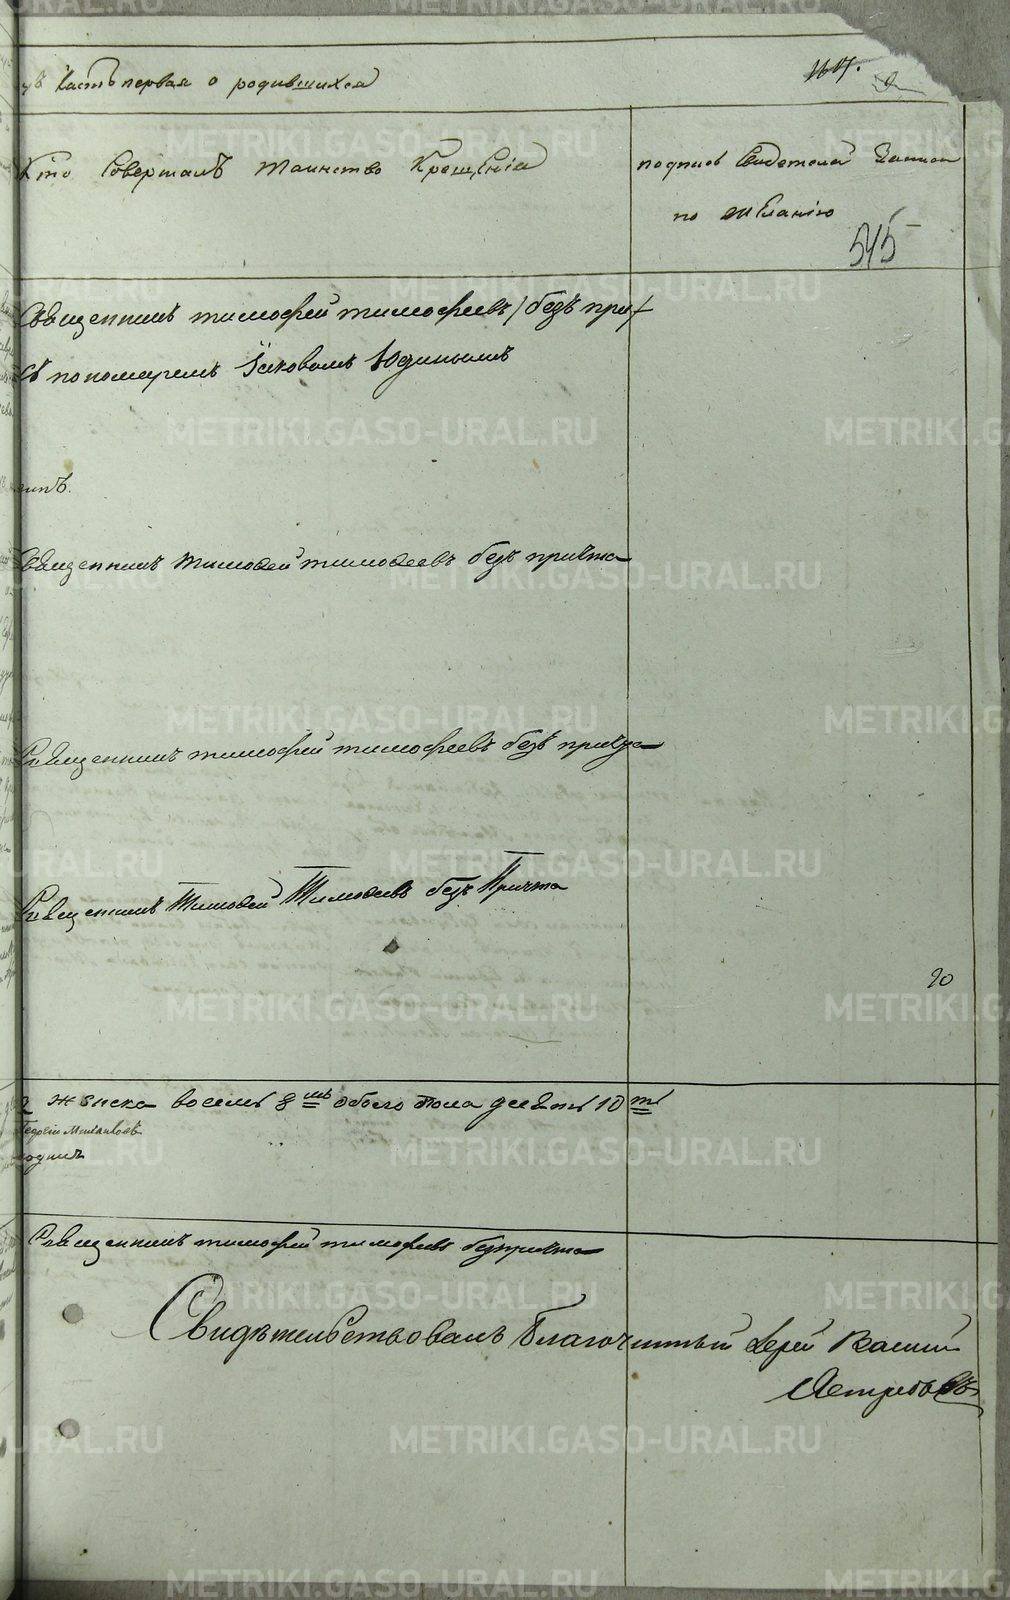 Часть первая о родившихся
Кто Совершалъ таинство Крещенія
подпись Свидетелей Записи
по желанію
545
Священникъ тимофей тимофеевъ /безъ при/
Съ пономаремъ Іаковомъ Юдинымъ
Священникъ тимоѳей тимоѳеевъ безъ причта
Священникъ тимофей тимофеевъ безъ причта
Священникъ Тимоѳей Тимоѳеевъ безъ Причта
20
женска восемь 8мь обоего пола десять 10ть
Георгій
Священникъ тимофей тимофеевъ безпричта
Свидѣтельствовалъ Благочинный Іерей Василій
Ястребовъ
METRIKI.GASO-URAL.RU